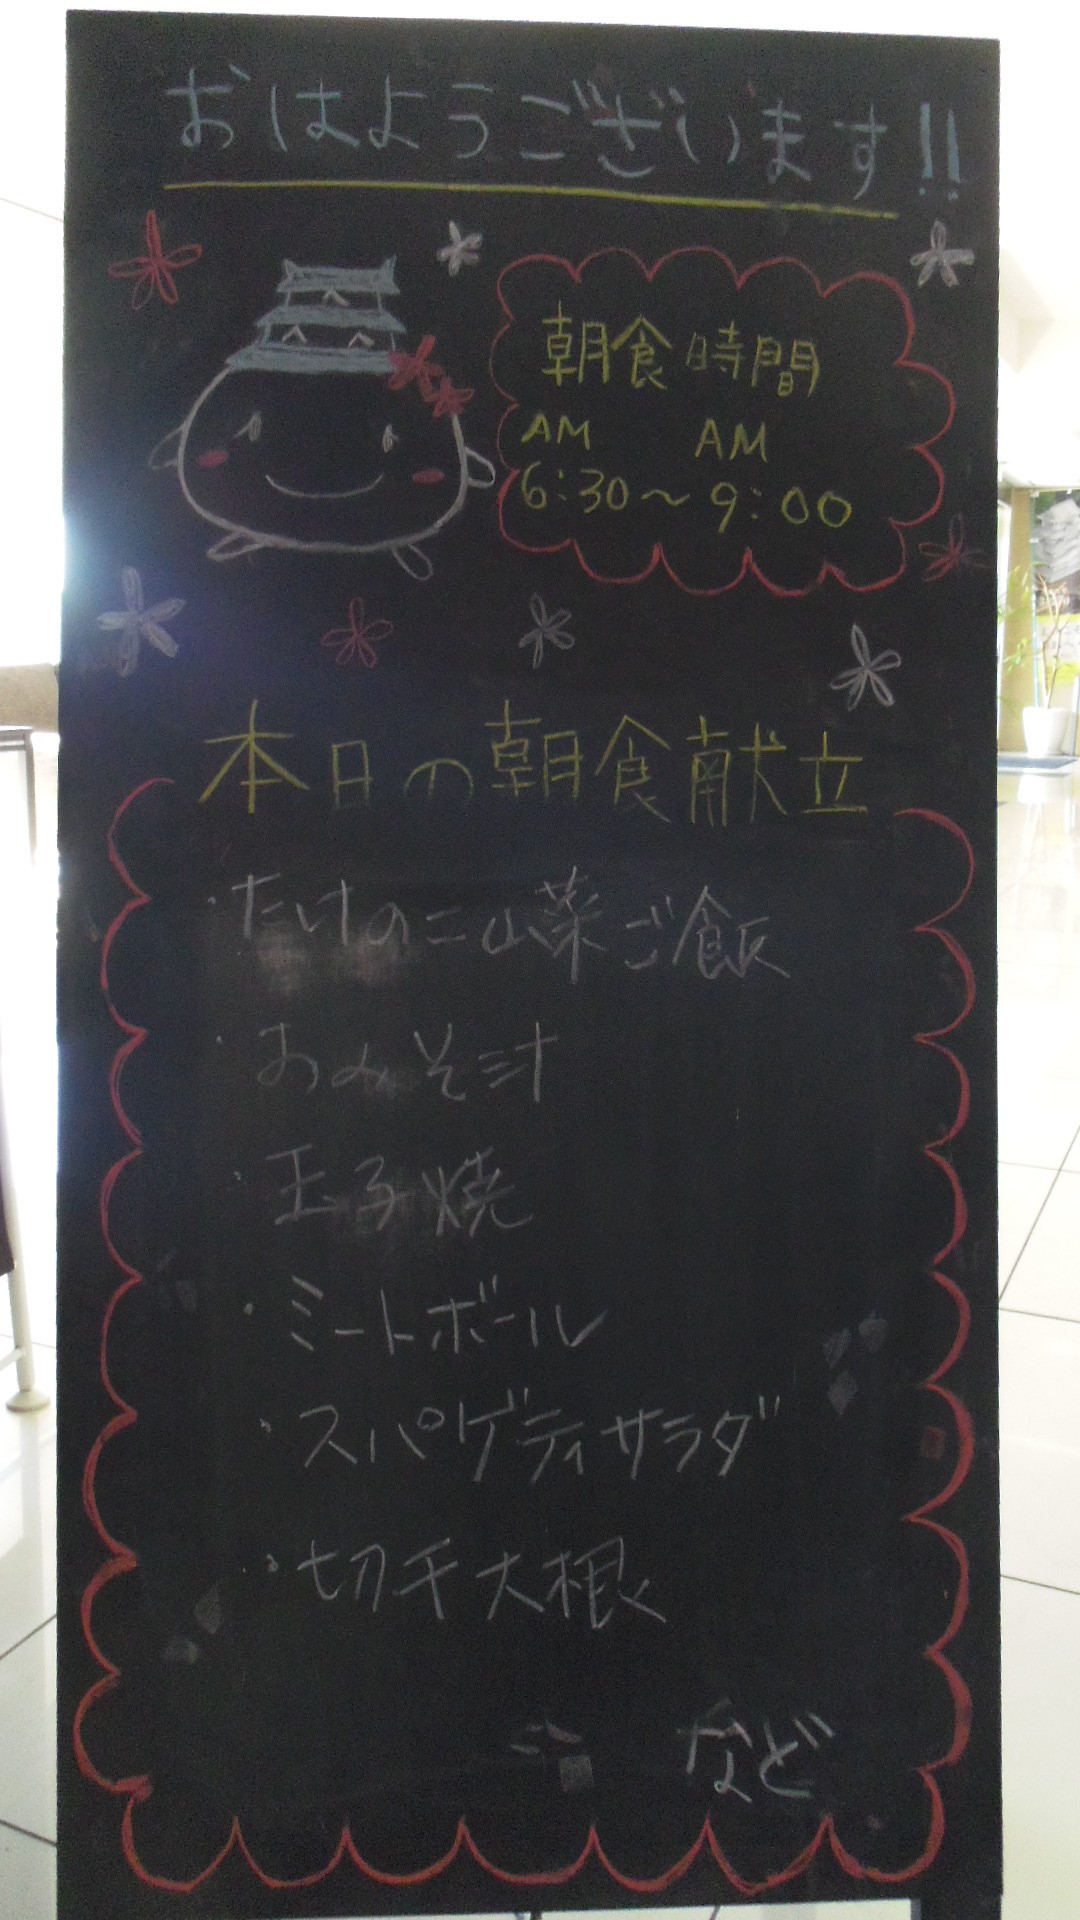 おはようございます!!
朝食時間
AM AM
6:30〜9:00
本日の朝食献立
・たけのこ山菜ご飯
・おみそ汁
・玉子焼
・ミートボール
・スパゲティサラダ
・切干大根
など